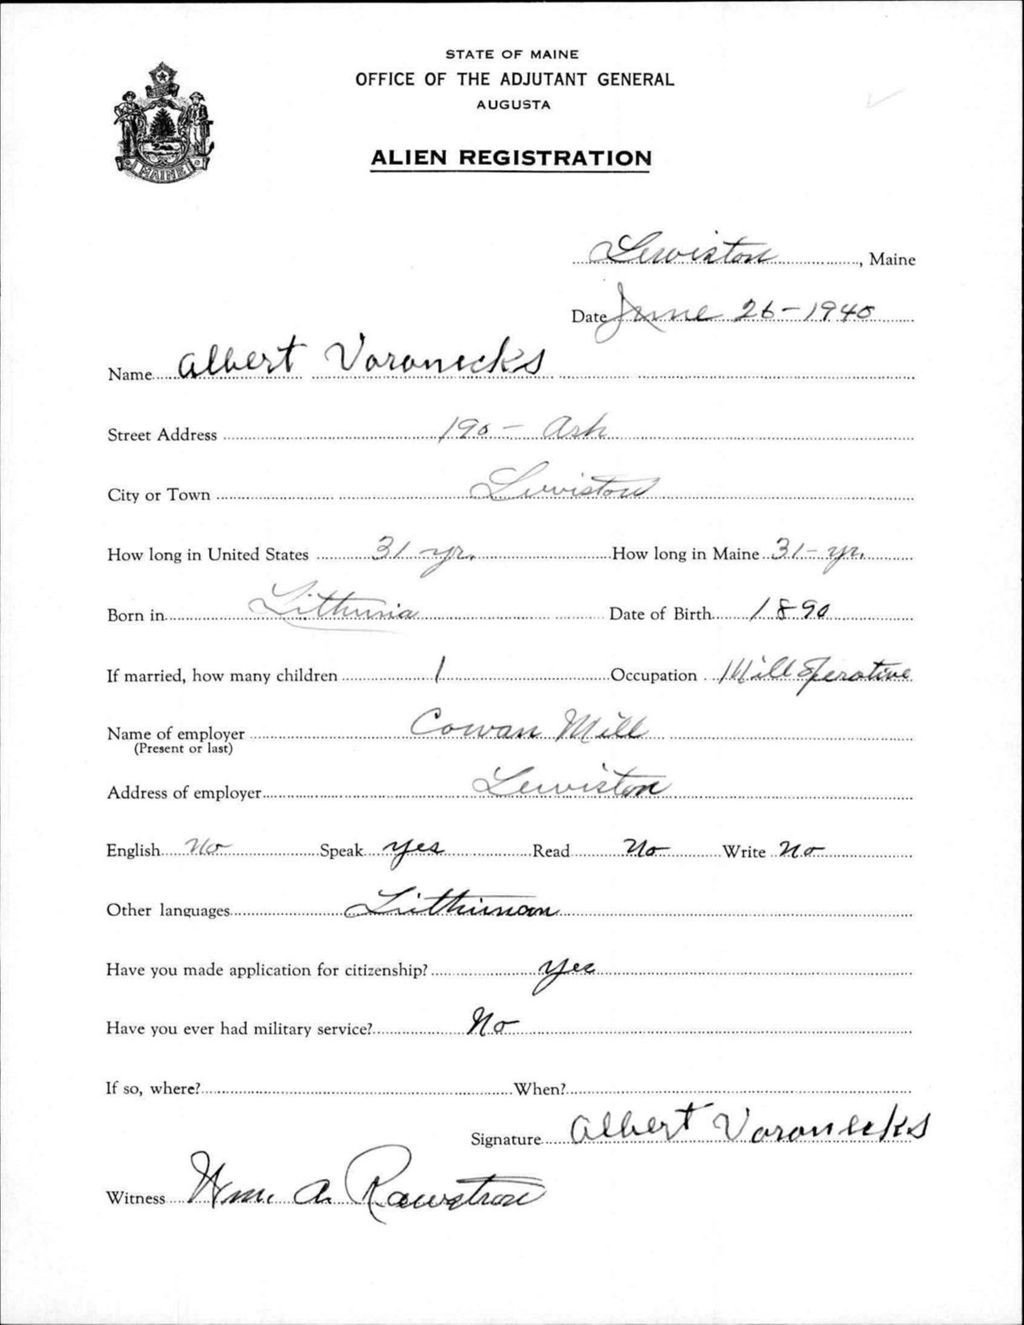 STATE OF MAINE
OFFICE OF THE ADJUTANT GENERAL
AUGUSTA
MAINE
ALIEN REGISTRATION
Lewiston, Maine
Date June 26-1940
Name Albert Voronecks
Street Address 190 - Ash
City or Town Lewiston
How long in United States 31 yr. How long in Maine 31 - yr.
Born in Lithunia Date of Birth 1890
If married, how many children 1 Occupation Mill Operative
Name of employer Cowan Mill
(Present or last)
Address of employer Lewiston
English No Speak yes Read No Write No
Other languages Lithunian
Have you made application for citizenship? Yes
Have you ever had military service? No
If so, where? When?
Signature Albert Voronecks
Witness Wm. A. Rawstron